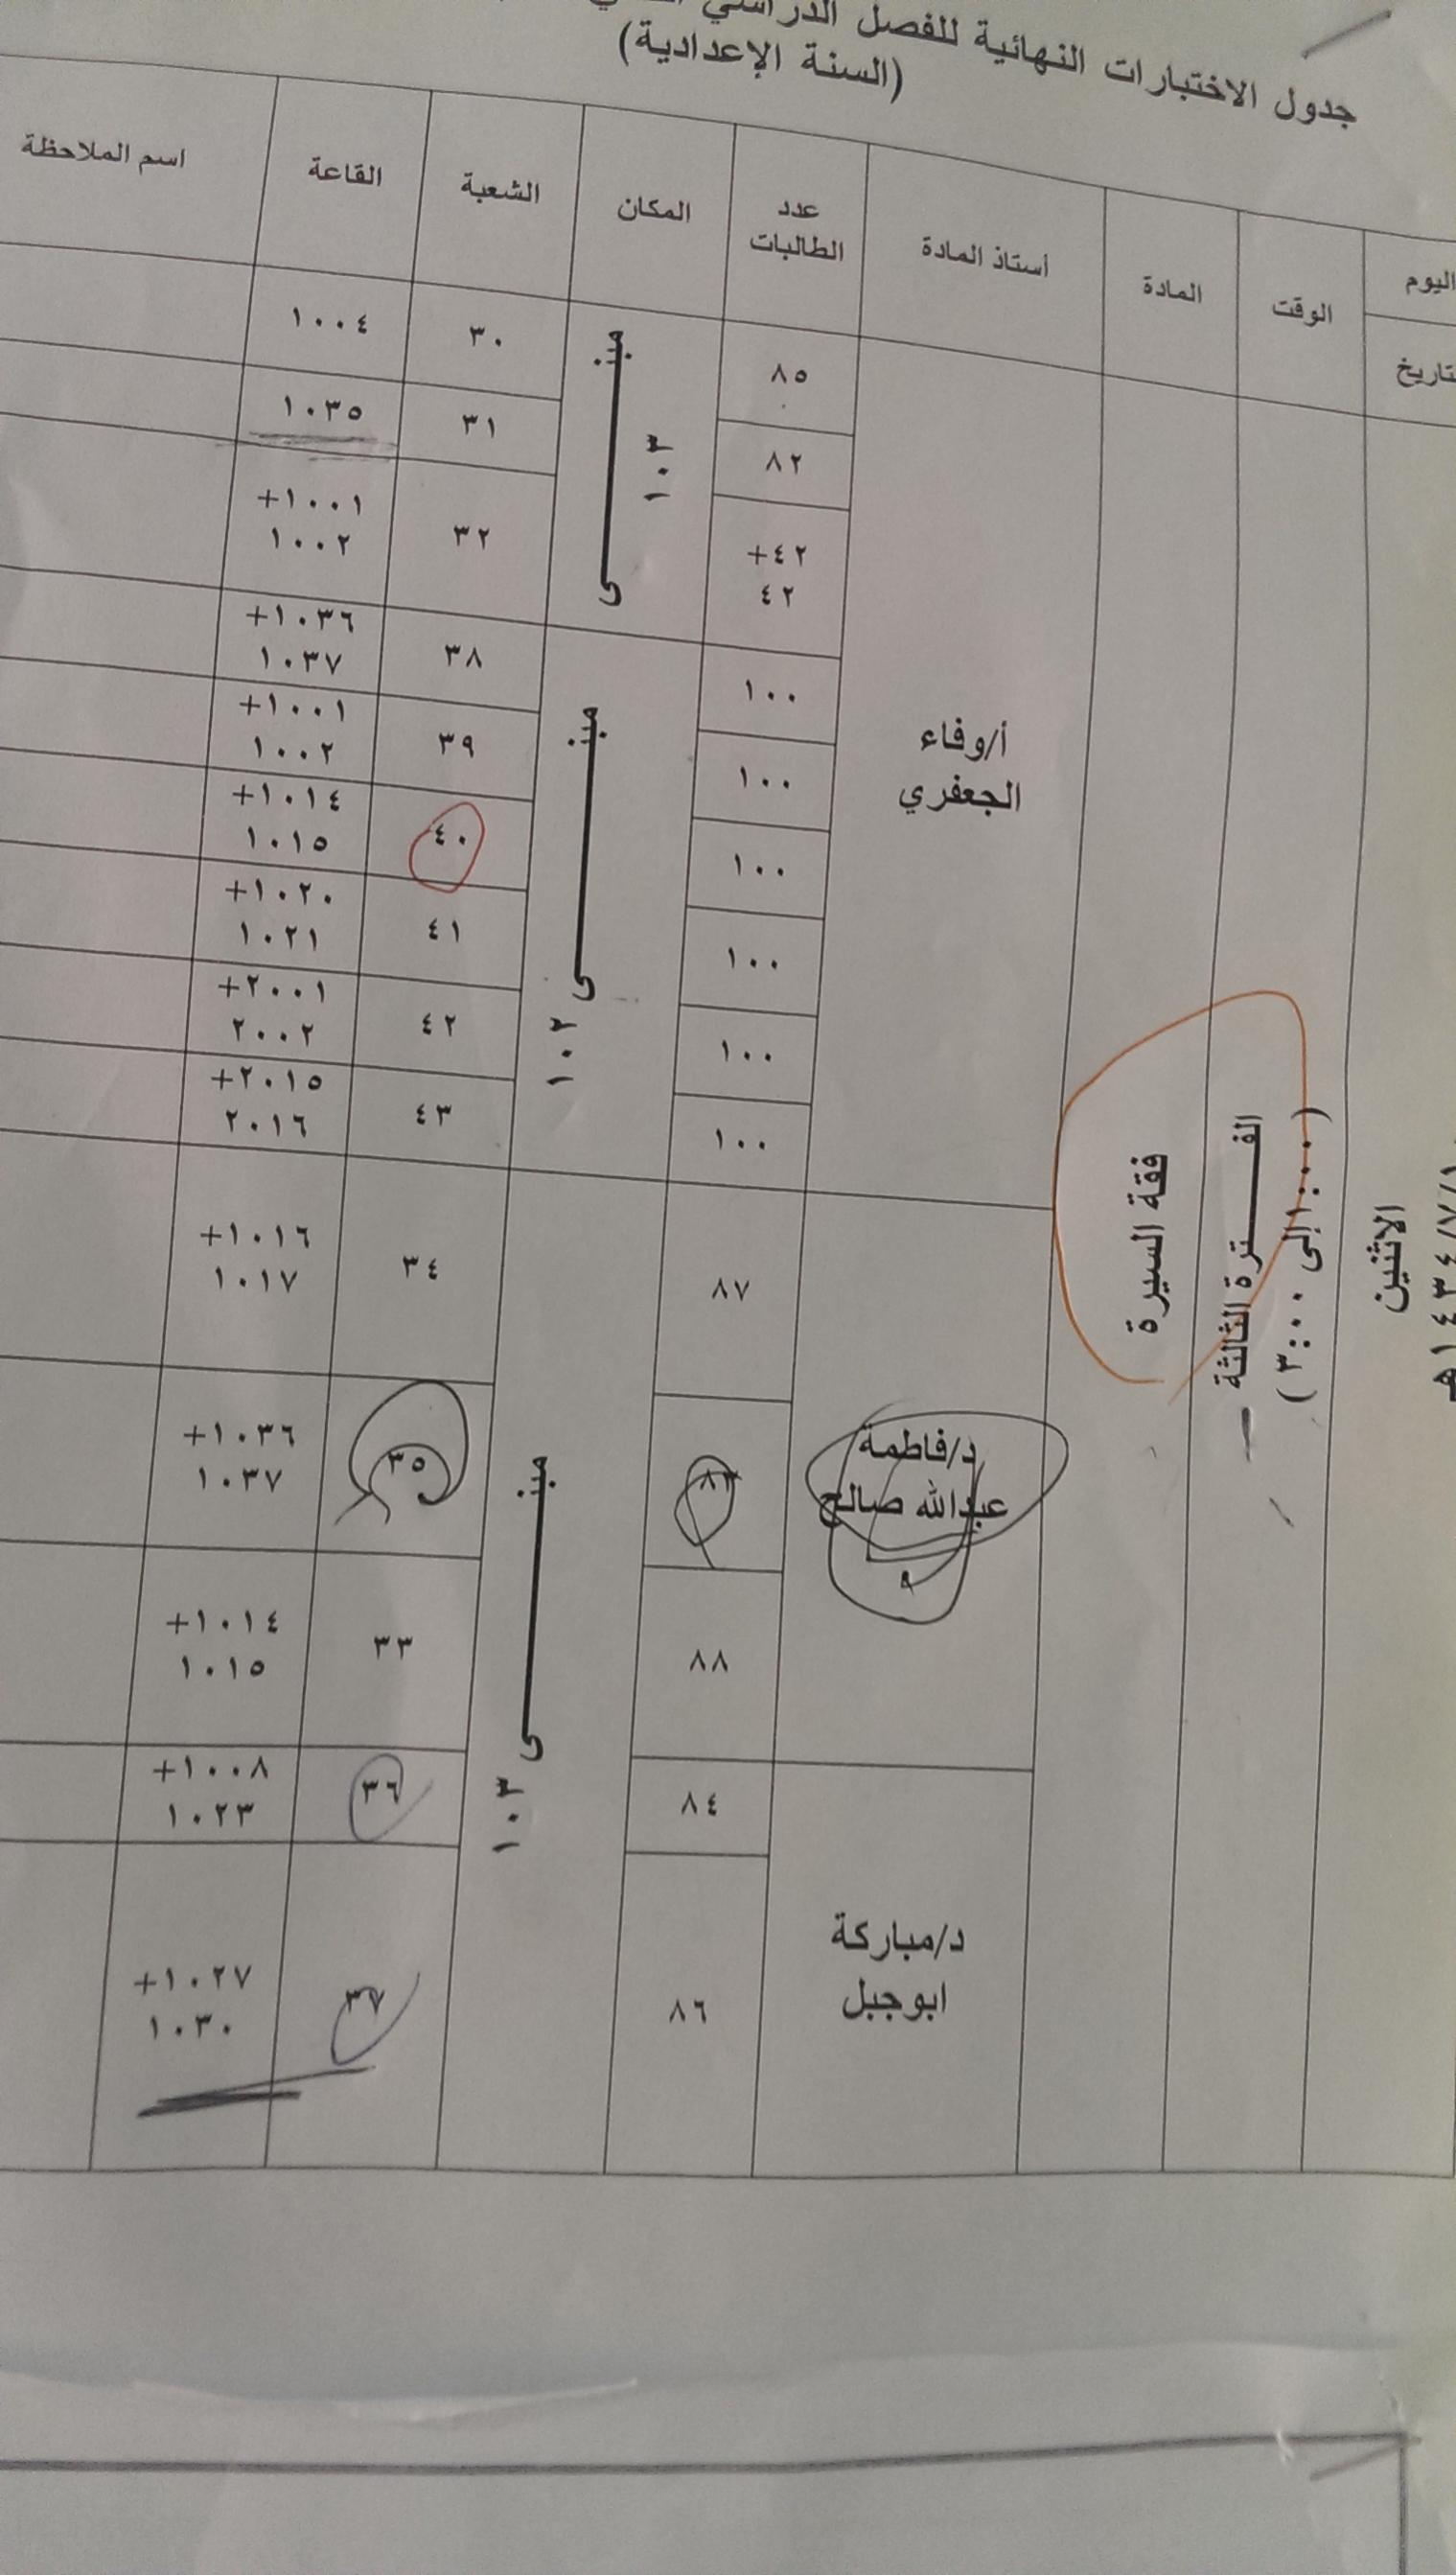 جدول الاختبارات النهائية للفصل الدراسي
(السنة الإعدادية)
اليوم
تاريخ
الوقت
المادة
أستاذ المادة
عدد
الطالبات
المكان
الشعبة
القاعة
اسم الملاحظة
الاثنين
الفــــــترة الثالثة
(١:٠٠ إلى ٣:٠٠)
فقة السيرة
أ/وفاء
الجعفري
مبنــــــى ١٠٣
٨٥
٣٠
١٠٠٤
٨٢
٣١
١٠٣٥
٤٢+
٤٢
٣٢
١٠٠١+
١٠٠٢
مبنــــــى ١٠٢
١٠٠
٣٨
١٠٣٦+
١٠٣٧
١٠٠
٣٩
١٠٠١+
١٠٠٢
١٠٠
٤٠
١٠١٤+
١٠١٥
١٠٠
٤١
١٠٢٠+
١٠٢١
١٠٠
٤٢
٢٠٠١+
٢٠٠٢
١٠٠
٤٣
٢٠١٥+
٢٠١٦
د/فاطمة
عبدالله صالح
مبنــــــى ١٠٣
٨٧
٣٤
١٠١٦+
١٠١٧
٣٥
١٠٣٦+
١٠٣٧
٨٨
٣٣
١٠١٤+
١٠١٥
د/مباركة
ابوجبل
٨٤
٣٦
١٠٠٨+
١٠٢٣
٨٦
٣٧
١٠٢٧+
١٠٣٠